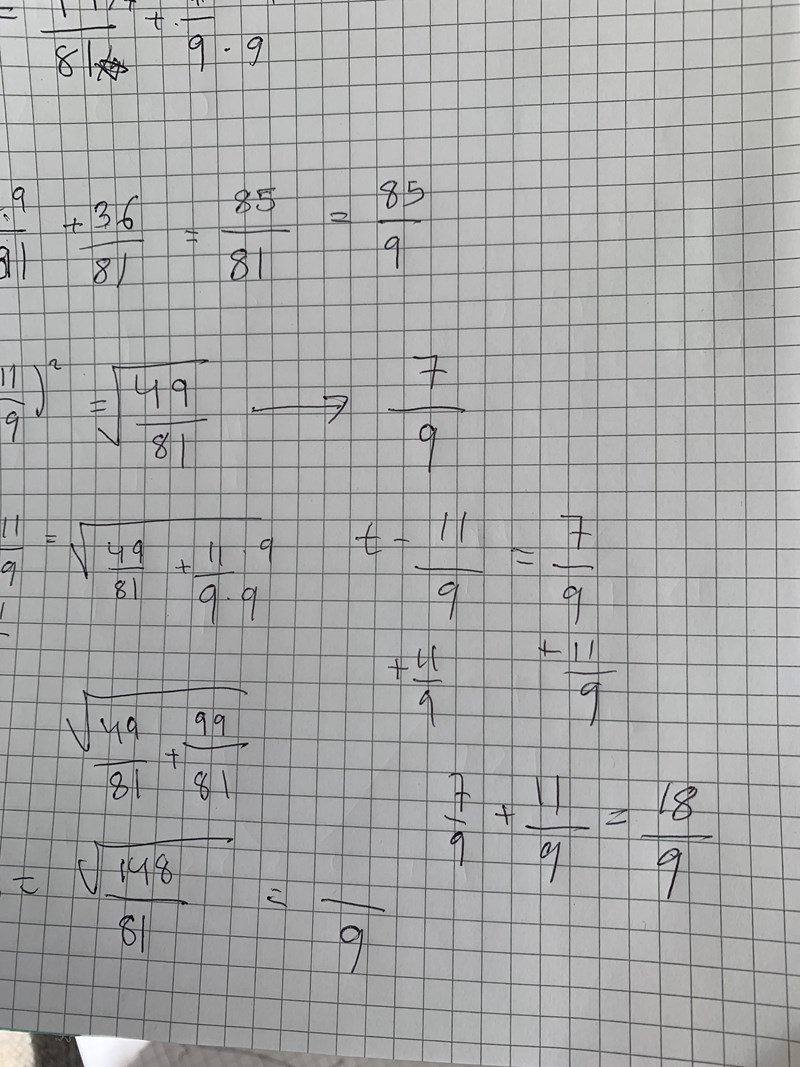 = —/81 + —/(9 · 9)
· 9/81 + 36/81 = 85/81 = 85/9
11/9)² = √(49/81) → 7/9
11/9 = √(49/81 + 11 · 9/(9 · 9)) t - 11/9 = 7/9
+ 11/9 + 11/9
√(49/81 + 99/81)
7/9 + 11/9 = 18/9
= √(148/81) = —/9